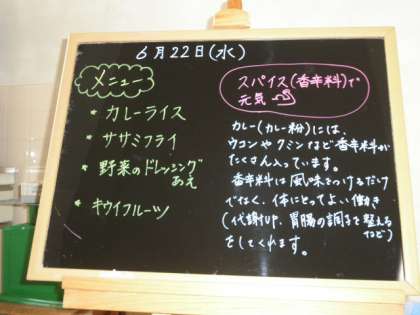 6月22日(水)
メニュー
* カレーライス
* ササミフライ
* 野菜のドレッシング
あえ
* キウイフルーツ
スパイス(香辛料)で
元気
カレー(カレー粉)には、
ウコンやクミンなど香辛料が
たくさん入っています。
香辛料は風味をつけるだけ
でなく、体にとってよい働き
(代謝UP、胃腸の調子を整える
など)
をしてくれます。